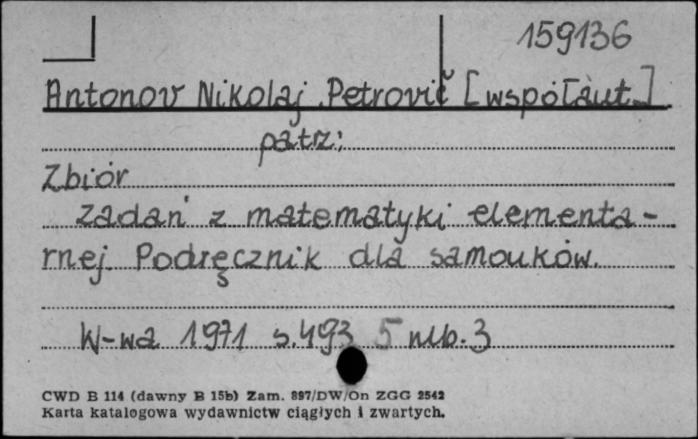 159136
Antonov Nikolaj Petrovič [współaut.]
patrz:
Zbiór
zadań z matematyki elementa-
rnej. Podręcznik dla samouków.
W-wa 1971 s.493 5 nlb. 3
CWD B 114 (dawny B 15b) Zam. 897/DW/On ZGG 2542
Karta katalogowa wydawnictw ciągłych i zwartych.